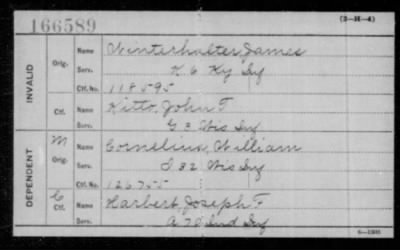 166589
(3-M-4)
INVALID
Orig. Name Winterhalter, James
Serv. K 6 Ky Inf
Ctf. No. 118595
Ctf. Name Kitto, John T
Serv. G 3 Wis Inf
DEPENDENT
M Orig. Name Cornelius, William
Serv. I 32 Wis Inf
Ctf. No. 126755
C Ctf. Name Harbert Joseph F
Serv. A 70 Ind Inf